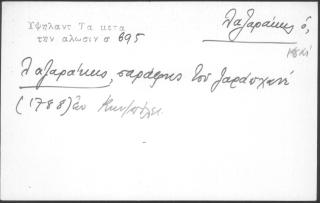 Υψηλαντ Τα μετα
την αλωσιν σ 695
Λαζαράκης ὁ,
Λαζαράκης, σαράφης τοῦ
(1788) ἐν Κων/πόλει